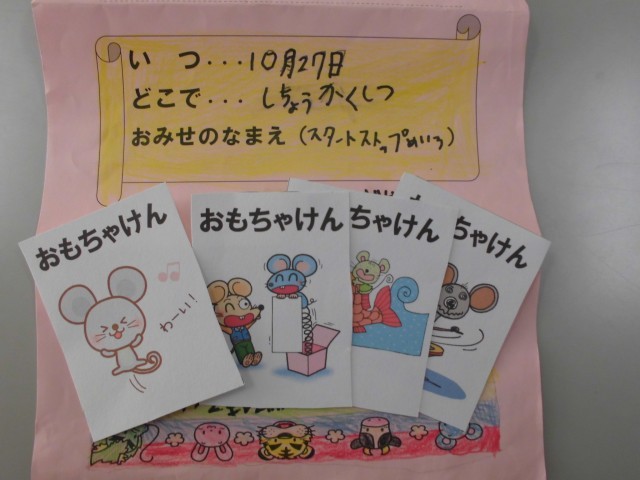 いつ・・・10月27日
どこで・・・しちょうかくしつ
おみせのなまえ(スタートストップめいろ)
おもちゃけん
わーい!
おもちゃけん
ちゃけん
ちゃけん